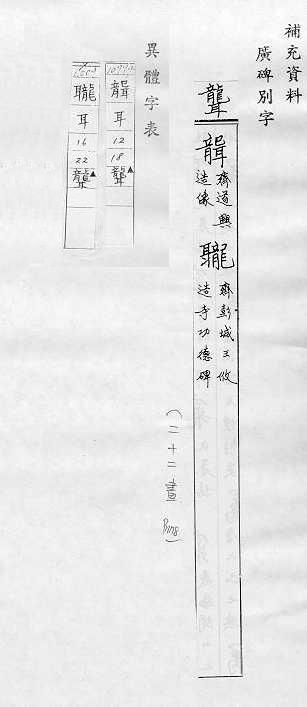 補充資料
廣碑別字
聾
𦖢 齊道興
造像
䏊 齊彭城王攸
造寺功德碑
(二十二畫
異體字表
耳
12
18
聾▲
耳
16
22
聾▲